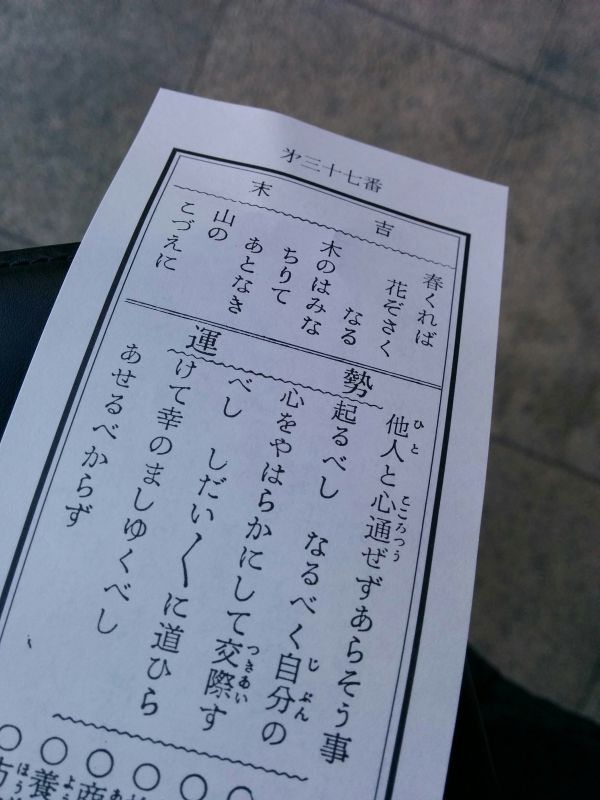 㐧三十七番
末吉
春くれば
花ぞさく
なる
木のはみな
ちりて
あとなき
山の
こづえに
運勢
他人と心通ぜずあらそう事
起るべし　なるべく自分の
心をやはらかにして交際す
べし　しだい〱に道ひら
けて幸のましゆくべし
あせるべからず
○
○
○
○商
○養
○方